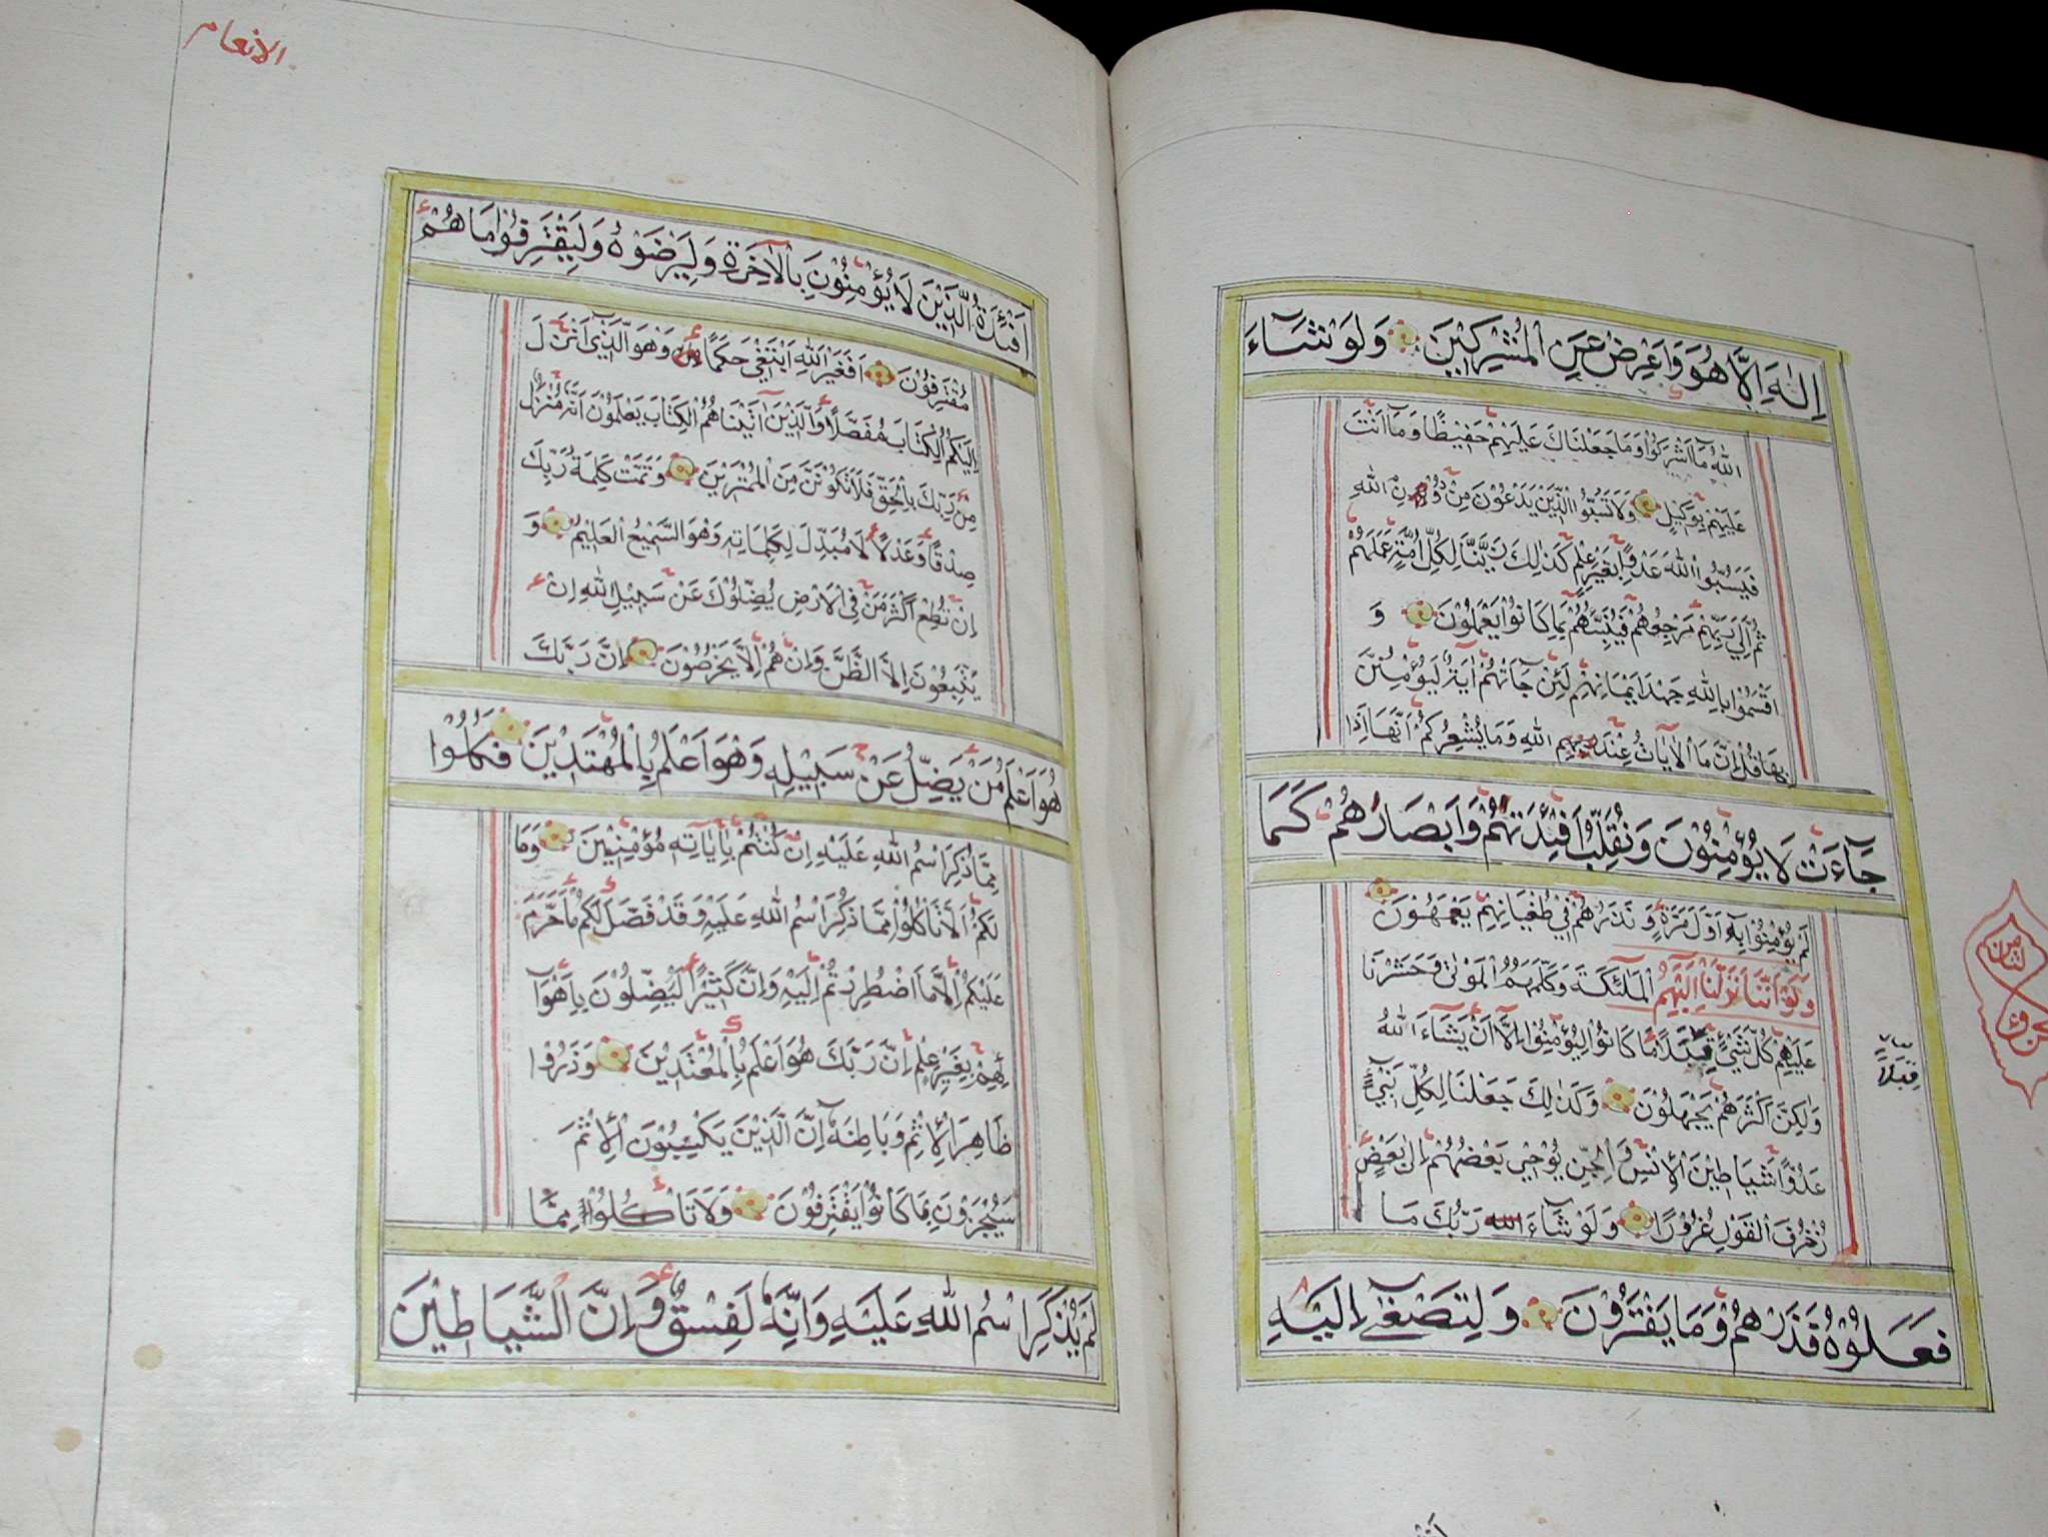 اِلٰهَ اِلَّا هُوَ وَاَعْرِضْ عَنِ الْمُشْرِكِيْنَ وَلَوْ شَآءَ
اللهُ مَآ اَشْرَكُوْا وَمَا جَعَلْنَاكَ عَلَيْهِمْ حَفِيْظًا وَمَآ اَنْتَ
عَلَيْهِمْ بِوَكِيْلٍ وَلَا تَسُبُّوا الَّذِيْنَ يَدْعُوْنَ مِنْ دُوْنِ اللهِ
فَيَسُبُّوا اللهَ عَدْوًا بِغَيْرِ عِلْمٍ كَذٰلِكَ زَيَّنَّا لِكُلِّ اُمَّةٍ عَمَلَهُمْ
ثُمَّ اِلٰي رَبِّهِمْ مَرْجِعُهُمْ فَيُنَبِّئُهُمْ بِمَا كَانُوْا يَعْمَلُوْنَ وَ
اَقْسَمُوْا بِاللهِ جَهْدَ اَيْمَانِهِمْ لَئِنْ جَآتْهُمْ اٰيَةٌ لَيُؤْمِنُنَّ
بِهَا قُلْ اِنَّمَا الْاٰيَاتُ عِنْدَ اللهِ وَمَا يُشْعِرُكُمْ اَنَّهَآ اِذَا
جَآءَتْ لَا يُؤْمِنُوْنَ وَنُقَلِّبُ اَفْئِدَتَهُمْ وَاَبْصَارَهُمْ كَمَا
لَمْ يُؤْمِنُوْا بِهٖ اَوَّلَ مَرَّةٍ وَنَذَرُهُمْ فِيْ طُغْيَانِهِمْ يَعْمَهُوْنَ
وَلَوْ اَنَّنَا نَزَّلْنَا اِلَيْهِمُ الْمَلٰئِكَةَ وَكَلَّمَهُمُ الْمَوْتٰى وَحَشَرْنَا
عَلَيْهِمْ كُلَّ شَيْئٍ قِبَلًا مَا كَانُوْا لِيُؤْمِنُوْا اِلَّآ اَنْ يَشَآءَ اللهُ
وَلٰكِنَّ اَكْثَرَهُمْ يَجْهَلُوْنَ وَكَذٰلِكَ جَعَلْنَا لِكُلِّ نَبِيٍّ
عَدُوًّا شَيَاطِيْنَ الْاِنْسِ وَالْجِنِّ يُوْحِيْ بَعْضُهُمْ اِلٰى بَعْضٍ
زُخْرُفَ الْقَوْلِ غُرُوْرًا وَلَوْ شَآءَ الله رَبُّكَ مَا
فَعَلُوْهُ فَذَرْهُمْ وَمَا يَفْتَرُوْنَ وَلِتَصْغٰٓى اِلَيْهِ
قِبَلًا
الانعام
اَفْئِدَةُ الَّذِيْنَ لَا يُؤْمِنُوْنَ بِالْاٰخِرَةِ وَلِيَرْضَوْهُ وَلِيَقْتَرِفُوْا مَا هُمْ
مُقْتَرِفُوْنَ اَفَغَيْرَ اللهِ اَبْتَغِيْ حَكَمًا وَهُوَ الَّذِيْ اَنْزَلَ
اِلَيْكُمُ الْكِتَابَ مُفَصَّلًا وَالَّذِيْنَ اٰتَيْنَاهُمُ الْكِتَابَ يَعْلَمُوْنَ اَنَّهٗ مُنْزَلٌ
مِنْ رَبِّكَ بِالْحَقِّ فَلَا تَكُوْنَنَّ مِنَ الْمُمْتَرِيْنَ وَتَمَّتْ كَلِمَةُ رَبِّكَ
صِدْقًا وَعَدْلًا لَا مُبَدِّلَ لِكَلِمَاتِهٖ وَهُوَ السَّمِيْعُ الْعَلِيْمُ وَ
اِنْ تُطِعْ اَكْثَرَ مَنْ فِى الْاَرْضِ يُضِلُّوْكَ عَنْ سَبِيْلِ اللهِ اِنْ
يَتَّبِعُوْنَ اِلَّا الظَّنَّ وَاِنْ هُمْ اِلَّا يَخْرُصُوْنَ اِنَّ رَبَّكَ
هُوَ اَعْلَمُ مَنْ يَضِلُّ عَنْ سَبِيْلِهٖ وَهُوَ اَعْلَمُ بِالْمُهْتَدِيْنَ فَكُلُوْا
مِمَّا ذُكِرَ اسْمُ اللهِ عَلَيْهِ اِنْ كُنْتُمْ بِاٰيَاتِهٖ مُؤْمِنِيْنَ وَمَا
لَكُمْ اَلَّا تَاْكُلُوْا مِمَّا ذُكِرَ اسْمُ اللهِ عَلَيْهِ وَقَدْ فَصَّلَ لَكُمْ مَا حَرَّمَ
عَلَيْكُمْ اِلَّا مَا اضْطُرِرْتُمْ اِلَيْهِ وَاِنَّ كَثِيْرًا لَيُضِلُّوْنَ بِاَهْوَآ
ئِهِمْ بِغَيْرِ عِلْمٍ اِنَّ رَبَّكَ هُوَ اَعْلَمُ بِالْمُعْتَدِيْنَ وَذَرُوْا
ظَاهِرَ الْاِثْمِ وَبَاطِنَهٗ اِنَّ الَّذِيْنَ يَكْسِبُوْنَ الْاِثْمَ
سَيُجْزَوْنَ بِمَا كَانُوْا يَقْتَرِفُوْنَ وَلَا تَاْكُلُوْا مِمَّا
لَمْ يُذْكَرِ اسْمُ اللهِ عَلَيْهِ وَاِنَّهٗ لَفِسْقٌ وَاِنَّ الشَّيَاطِيْنَ